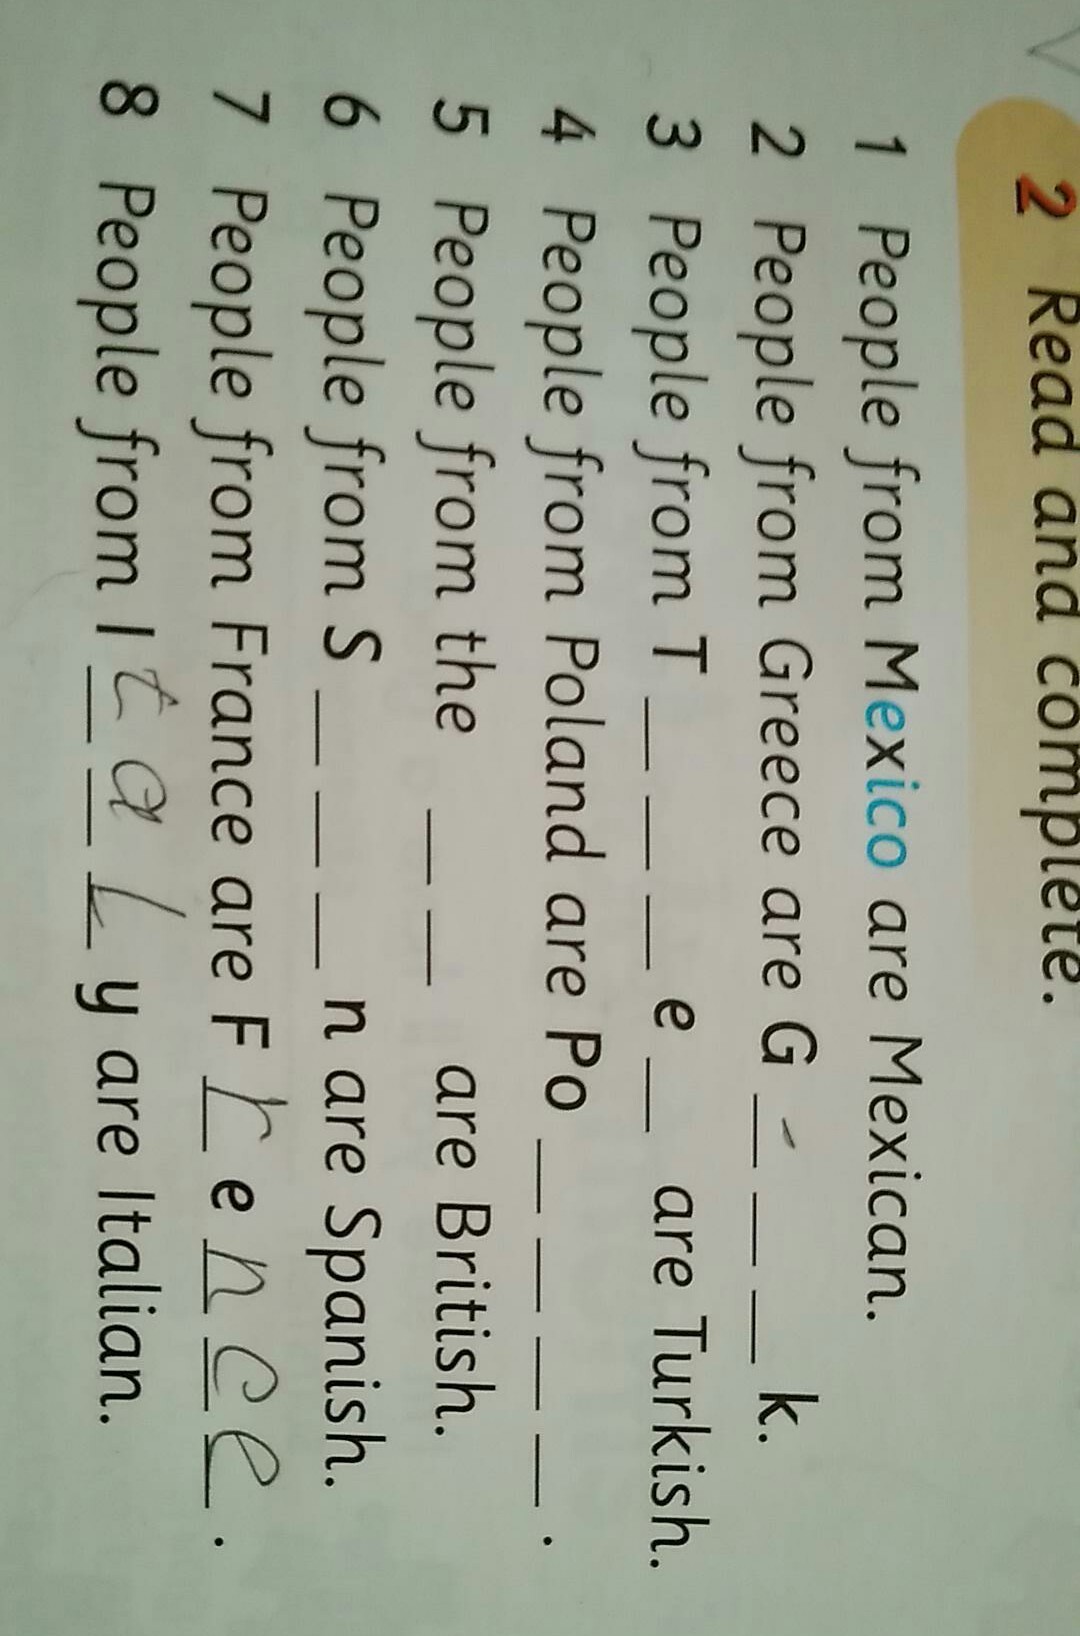 2 Read and complete.
1 People from Mexico are Mexican.
2 People from Greece are G _ _ _ k.
3 People from T _ _ _ e _ are Turkish.
4 People from Poland are Po _ _ _ _ .
5 People from the _ _ are British.
6 People from S _ _ _ n are Spanish.
7 People from France are F r e n c e .
8 People from I t a l y are Italian.